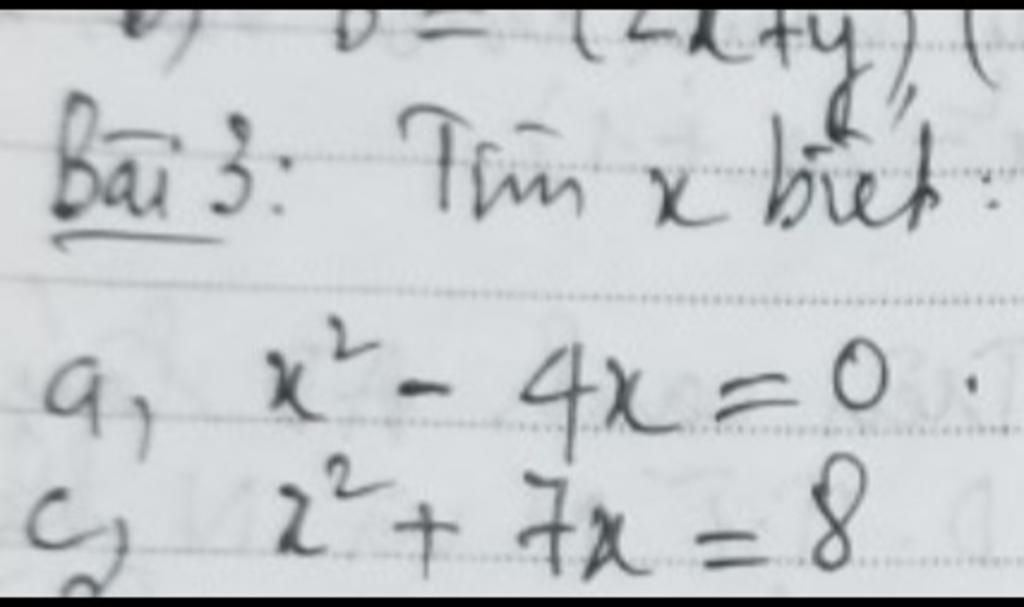 B = (2x+y) (
Bài 3: Tìm x biết:
a, x² - 4x = 0.
c, x² + 7x = 8